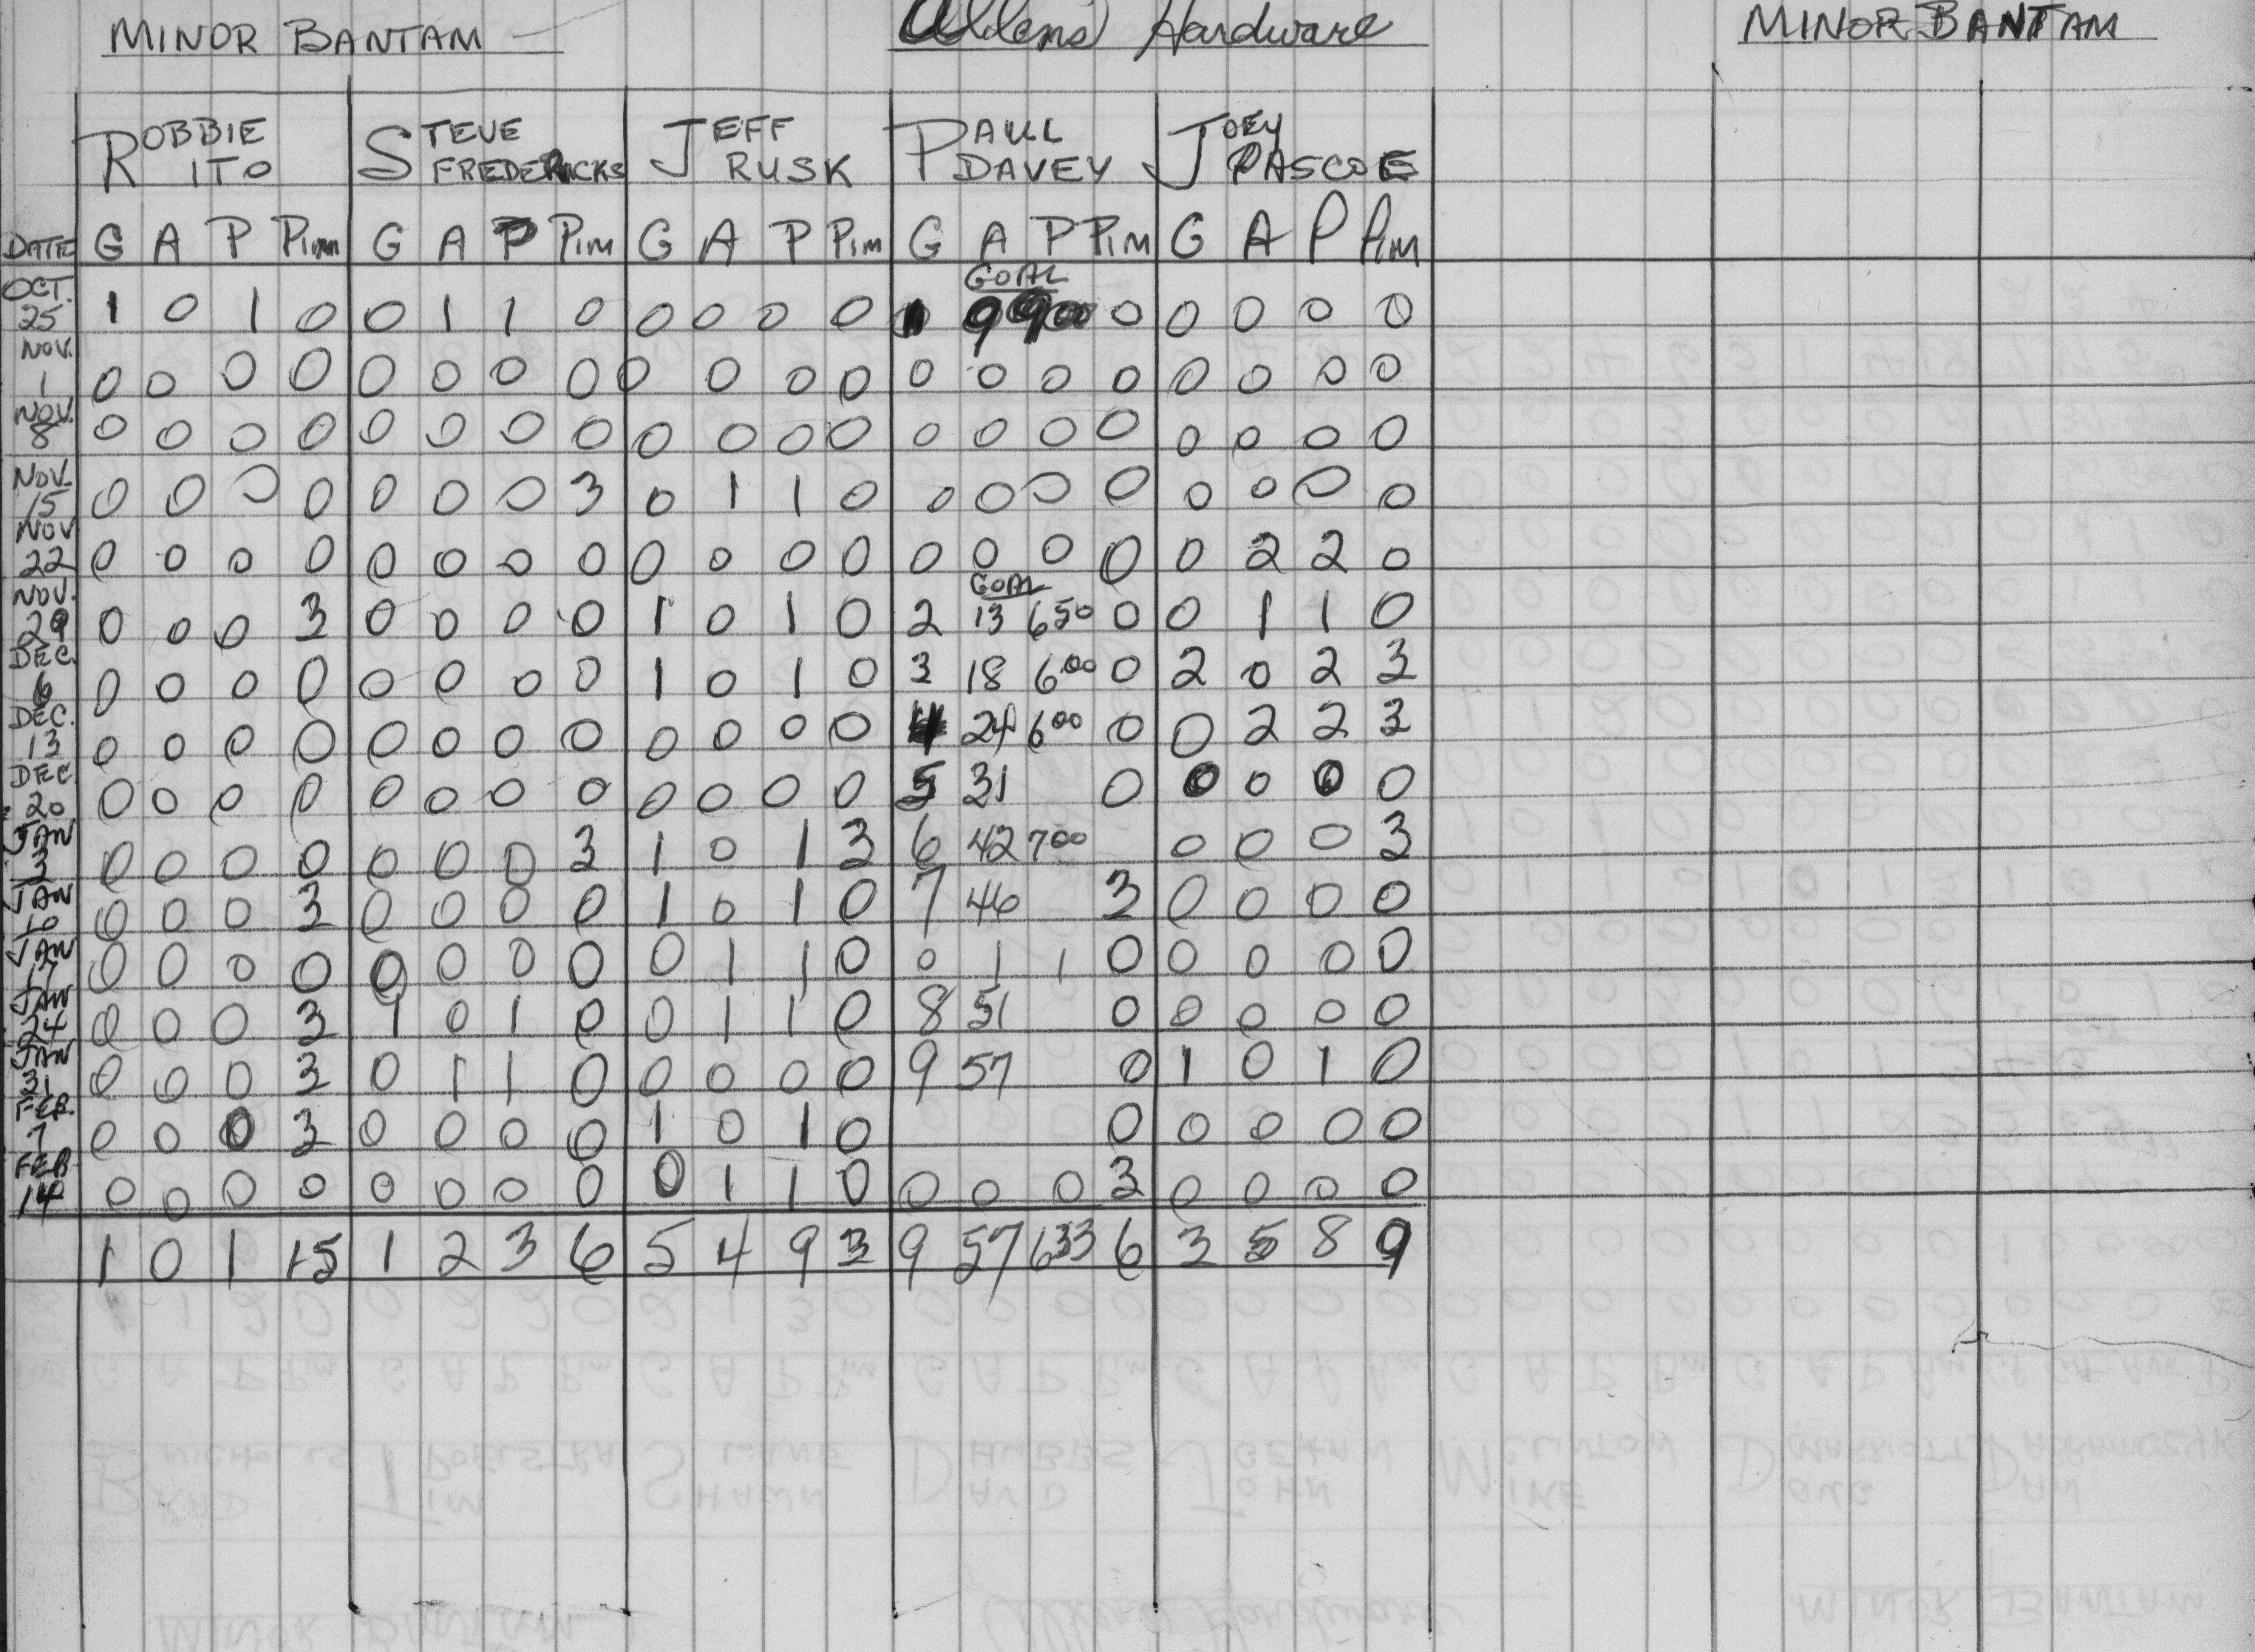 MINOR BANTAM Allens Hardware MINOR BANTAM
ROBBIE ITO STEVE FREDERICKS JEFF RUSK PAUL DAVEY JOEY PASCOE
DATE G A P Pim G A P Pim G A P Pim G A P Pim G A P Pim
GOAL
OCT. 25 1 0 1 0 0 1 1 0 0 0 0 0 1 9 900 0 0 0 0 0
NOV. 1 0 0 0 0 0 0 0 0 0 0 0 0 0 0 0 0 0 0 0 0
NOV. 8 0 0 0 0 0 0 0 0 0 0 0 0 0 0 0 0 0 0 0 0
NOV. 15 0 0 0 0 0 0 0 3 0 1 1 0 0 0 0 0 0 0 0 0
NOV 22 0 0 0 0 0 0 0 0 0 0 0 0 0 0 0 0 0 2 2 0
GOAL
NOV. 29 0 0 0 3 0 0 0 0 1 0 1 0 2 13 650 0 0 1 1 0
DEC. 6 0 0 0 0 0 0 0 0 1 0 1 0 3 18 600 0 2 0 2 3
DEC. 13 0 0 0 0 0 0 0 0 0 0 0 0 4 24 600 0 0 2 2 3
DEC. 20 0 0 0 0 0 0 0 0 0 0 0 0 5 31 0 0 0 0 0
JAN 3 0 0 0 0 0 0 0 3 1 0 1 3 6 42 700 0 0 0 3
JAN 10 0 0 0 3 0 0 0 0 1 0 1 0 7 46 3 0 0 0 0
JAN 17 0 0 0 0 0 0 0 0 0 1 1 0 0 1 1 0 0 0 0 0
JAN 24 0 0 0 3 1 0 1 0 0 1 1 0 8 51 0 0 0 0 0
JAN 31 0 0 0 3 0 1 1 0 0 0 0 0 9 57 0 1 0 1 0
FEB. 7 0 0 0 3 0 0 0 0 1 0 1 0 0 0 0 0 0
FEB 14 0 0 0 0 0 0 0 0 0 1 1 0 0 0 0 3 0 0 0 0
1 0 1 15 1 2 3 6 5 4 9 3 9 57 633 6 3 5 8 9